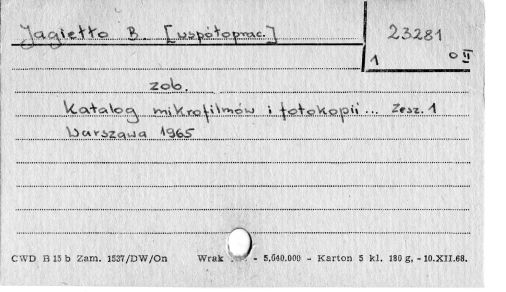 Jagiełło B. [współoprac.]
23281
1 0 II
zob.
Katalog mikrofilmów i fotokopii... Zesz. 1
Warszawa 1965
CWD B 15 b Zam. 1537/DW/On Wrak - 5,640.000 - Karton 5 kl. 180 g, - 10.XII.68.